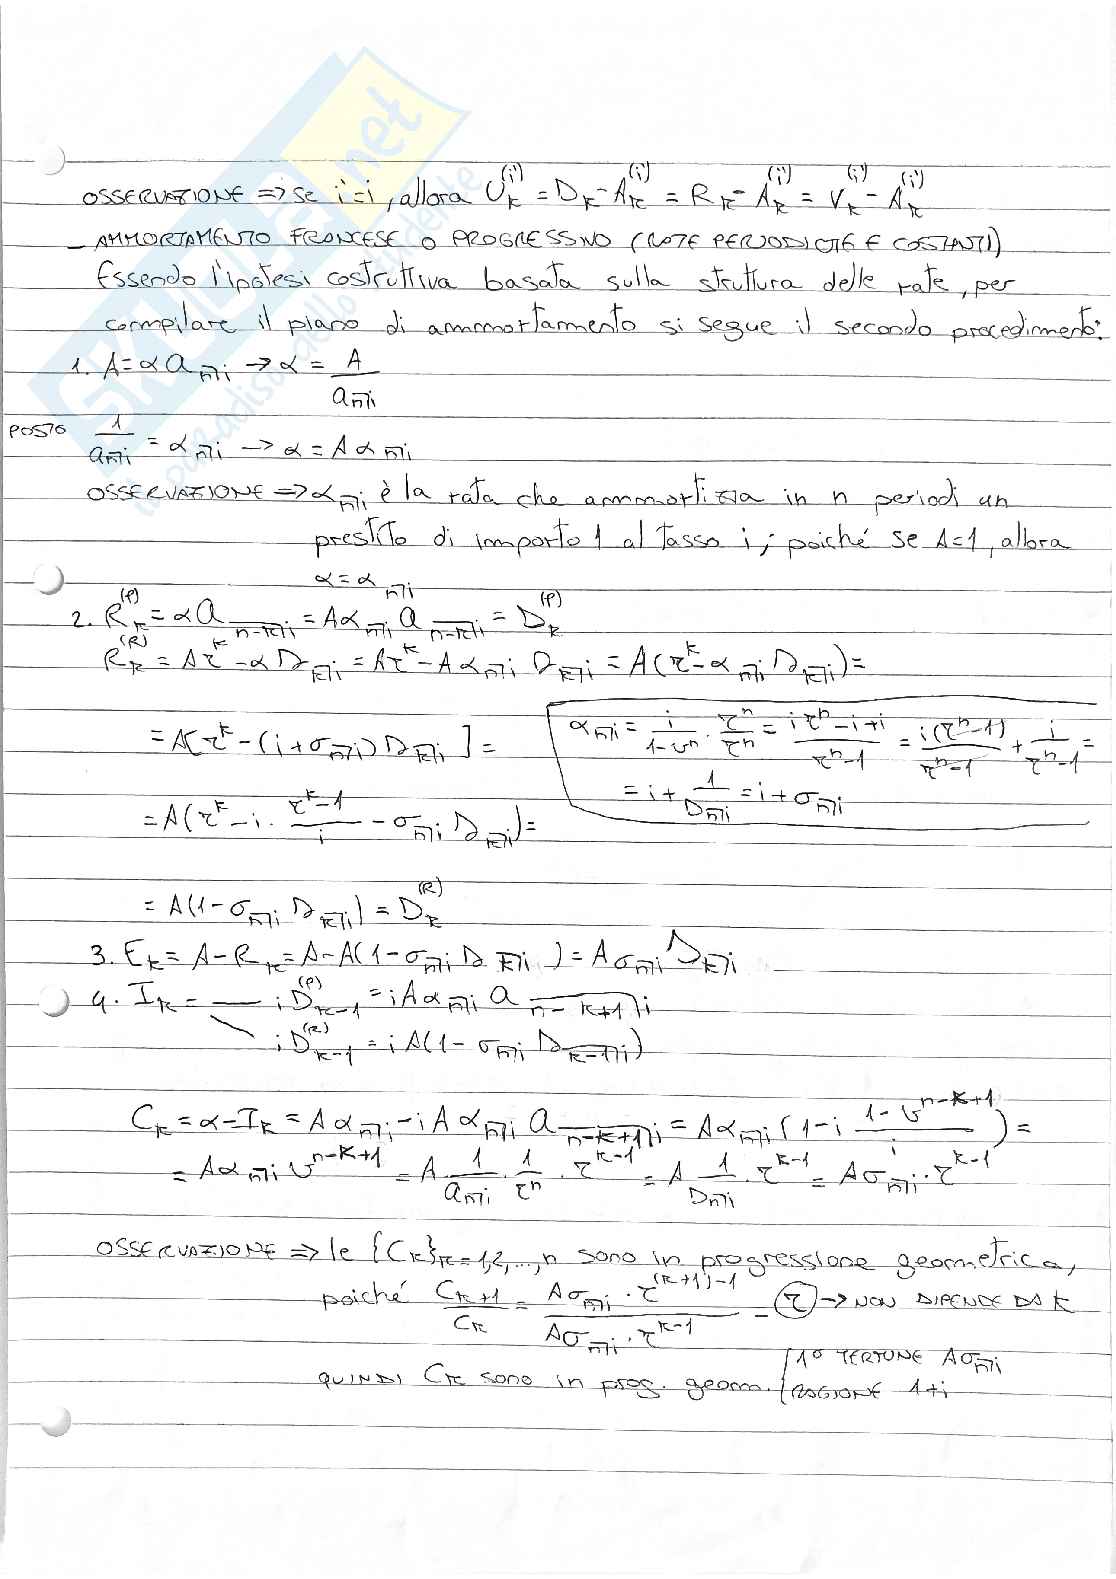 OSSERVAZIONE => se i'=i, allora U_k^(i') = D_k - A_k^(i') = R_k - A_k^(i') = V_k^(i') - A_k^(i')
- AMMORTAMENTO FRANCESE O PROGRESSIVO (RATE PERIODICHE E COSTANTI)
Essendo l'ipotesi costruttiva basata sulla struttura delle rate, per
compilare il piano di ammortamento si segue il secondo procedimento:
1. A = α a_n̅|i → α = A / a_n̅|i
POSTO 1 / a_n̅|i = α_n̅|i → α = A α_n̅|i
OSSERVAZIONE => α_n̅|i è la rata che ammortizza in n periodi un
prestito di importo 1 al tasso i; poiché se A=1, allora
α = α_n̅|i
2. R_k^(P) = α a_n-k|i = A α_n̅|i a_n-k|i = D_k^(P)
R_k^(R) = A r^k - α s_k̅|i = A r^k - A α_n̅|i s_k̅|i = A(r^k - α_n̅|i s_k̅|i) =
= A[r^k - (i + σ_n̅|i) s_k̅|i] =
α_n̅|i = i / (1-v^n) · r^n / r^n = (i r^n - i + i) / (r^n - 1) = i(r^n - 1) / (r^n - 1) + i / (r^n - 1) =
= i + 1 / s_n̅|i = i + σ_n̅|i
= A(r^k - i · (r^k - 1) / i - σ_n̅|i s_k̅|i) =
= A(1 - σ_n̅|i s_k̅|i) = D_k^(R)
3. E_k = A - R_k = A - A(1 - σ_n̅|i s_k̅|i) = A σ_n̅|i s_k̅|i
4. I_k = — i D_k-1^(P) = i A α_n̅|i a_n-k+1|i
i D_k-1^(R) = i A(1 - σ_n̅|i s_k-1|i)
C_k = α - I_k = A α_n̅|i - i A α_n̅|i a_n-k+1|i = A α_n̅|i (1 - i (1 - v^n-k+1) / i) =
= A α_n̅|i v^n-k+1 = A 1 / a_n̅|i · 1 / r^n · r^k-1 = A 1 / s_n̅|i · r^k-1 = A σ_n̅|i · r^k-1
OSSERVAZIONE => le {C_k}_k=1,2,...,n sono in progressione geometrica,
poiché C_k+1 / C_k = A σ_n̅|i · r^(k+1)-1 / A σ_n̅|i · r^k-1 = r → NON DIPENDE DA K
QUINDI C_k sono in prog. geom. / 1° TERMINE A σ_n̅|i
RAGIONE 1+i